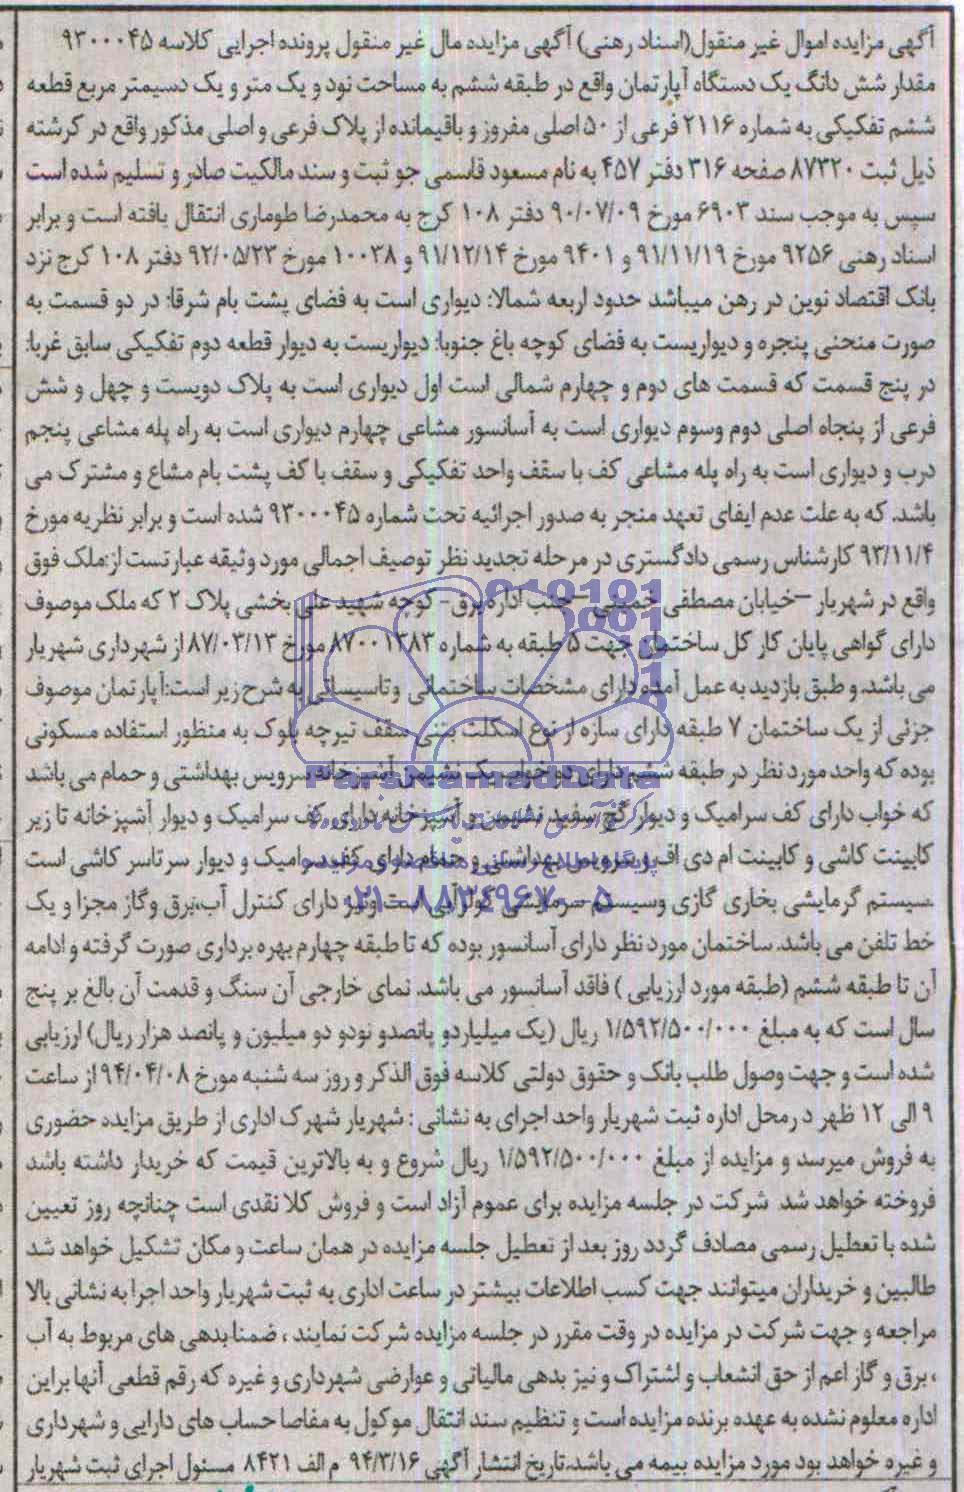 آگهی مزایده اموال غیر منقول(اسناد رهنی) آگهی مزایده مال غیر منقول پرونده اجرایی کلاسه ۹۳۰۰۰۴۵
مقدار شش دانگ یک دستگاه آپارتمان واقع در طبقه ششم به مساحت نود و یک متر و یک دسیمتر مربع قطعه
ششم تفکیکی به شماره ۲۱۱۶ فرعی از ۵۰ اصلی مفروز و باقیمانده از پلاک فرعی و اصلی مذکور واقع در کرشته
ذیل ثبت ۸۷۳۲۰ صفحه ۳۱۶ دفتر ۴۵۷ به نام مسعود قاسمی جو ثبت و سند مالکیت صادر و تسلیم شده است
سپس به موجب سند ۶۹۰۳ مورخ ۹۰/۰۷/۰۹ دفتر ۱۰۸ کرج به محمدرضا طوماری انتقال یافته است و برابر
اسناد رهنی ۹۲۵۶ مورخ ۹۱/۱۱/۱۹ و ۹۴۰۱ مورخ ۹۱/۱۲/۱۴ و ۱۰۰۳۸ مورخ ۹۲/۰۵/۲۳ دفتر ۱۰۸ کرج نزد
بانک اقتصاد نوین در رهن میباشد حدود اربعه شمالا: دیواری است به فضای پشت بام شرقا: در دو قسمت به
صورت منحنی پنجره و دیواریست به فضای کوچه باغ جنوبا: دیواریست به دیوار قطعه دوم تفکیکی سابق غربا:
در پنج قسمت که قسمت های دوم و چهارم شمالی است اول دیواری است به پلاک دویست و چهل و شش
فرعی از پنجاه اصلی دوم وسوم دیواری است به آسانسور مشاعی چهارم دیواری است به راه پله مشاعی پنجم
درب و دیواری است به راه پله مشاعی کف با سقف واحد تفکیکی و سقف با کف پشت بام مشاع و مشترک می
باشد. که به علت عدم ایفای تعهد منجر به صدور اجرائیه تحت شماره ۹۳۰۰۰۴۵ شده است و برابر نظریه مورخ
۹۳/۱۱/۴ کارشناس رسمی دادگستری در مرحله تجدید نظر توصیف اجمالی مورد وثیقه عبارتست از:ملک فوق
واقع در شهریار –خیابان مصطفی خمینی –جنب اداره برق- کوچه شهید علی بخشی پلاک ۲ که ملک موصوف
دارای گواهی پایان کار کل ساختمان جهت ۵ طبقه به شماره ۸۷۰۰۱۳۸۳ مورخ ۸۷/۰۳/۱۳ از شهرداری شهریار
می باشد. و طبق بازدید به عمل آمده دارای مشخصات ساختمانی وتاسیساتی به شرح زیر است:آپارتمان موصوف
جزئی از یک ساختمان ۷ طبقه دارای سازه از نوع اسکلت بتنی سقف تیرچه بلوک به منظور استفاده مسکونی
بوده که واحد مورد نظر در طبقه ششم دارای دو خواب یک نشیمن آشپزخانه سرویس بهداشتی و حمام می باشد
که خواب دارای کف سرامیک و دیوار گچ سفید نشیمن و آشپزخانه دارای کف سرامیک و دیوار آشپزخانه تا زیر
کابینت کاشی و کابینت ام دی اف و سرویس بهداشتی و حمام دارای کف سرامیک و دیوار سرتاسر کاشی است
.سیستم گرمایشی بخاری گازی وسیستم سرمایشی کولر آبی است ونیز دارای کنترل آب،برق وگاز مجزا و یک
خط تلفن می باشد. ساختمان مورد نظر دارای آسانسور بوده که تا طبقه چهارم بهره برداری صورت گرفته و ادامه
آن تا طبقه ششم (طبقه مورد ارزیابی ) فاقد آسانسور می باشد. نمای خارجی آن سنگ و قدمت آن بالغ بر پنج
سال است که به مبلغ ۱/۵۹۲/۵۰۰/۰۰۰ ریال (یک میلیاردو پانصدو نودو دو میلیون و پانصد هزار ریال) ارزیابی
شده است و جهت وصول طلب بانک و حقوق دولتی کلاسه فوق الذکر و روز سه شنبه مورخ ۹۴/۰۴/۰۸ از ساعت
۹ الی ۱۲ ظهر درمحل اداره ثبت شهریار واحد اجرای به نشانی : شهریار شهرک اداری از طریق مزایده حضوری
به فروش میرسد و مزایده از مبلغ ۱/۵۹۲/۵۰۰/۰۰۰ ریال شروع و به بالاترین قیمت که خریدار داشته باشد
فروخته خواهد شد شرکت در جلسه مزایده برای عموم آزاد است و فروش کلا نقدی است چنانچه روز تعیین
شده با تعطیل رسمی مصادف گردد روز بعد از تعطیل جلسه مزایده در همان ساعت و مکان تشکیل خواهد شد
طالبین و خریداران میتوانند جهت کسب اطلاعات بیشتر در ساعت اداری به ثبت شهریار واحد اجرا به نشانی بالا
مراجعه و جهت شرکت در مزایده در وقت مقرر در جلسه مزایده شرکت نمایند ، ضمنا بدهی های مربوط به آب
، برق و گاز اعم از حق انشعاب و اشتراک و نیز بدهی مالیاتی و عوارضی شهرداری و غیره که رقم قطعی آنها براین
اداره معلوم نشده به عهده برنده مزایده است و تنظیم سند انتقال موکول به مفاصا حساب های دارایی و شهرداری
و غیره خواهد بود مورد مزایده بیمه می باشد.تاریخ انتشار آگهی ۹۴/۳/۱۶ م الف ۸۴۲۱ مسئول اجرای ثبت شهریار
ParsNamadData
۰۲۱-۸۸۳۴۹۶۷۰-۵